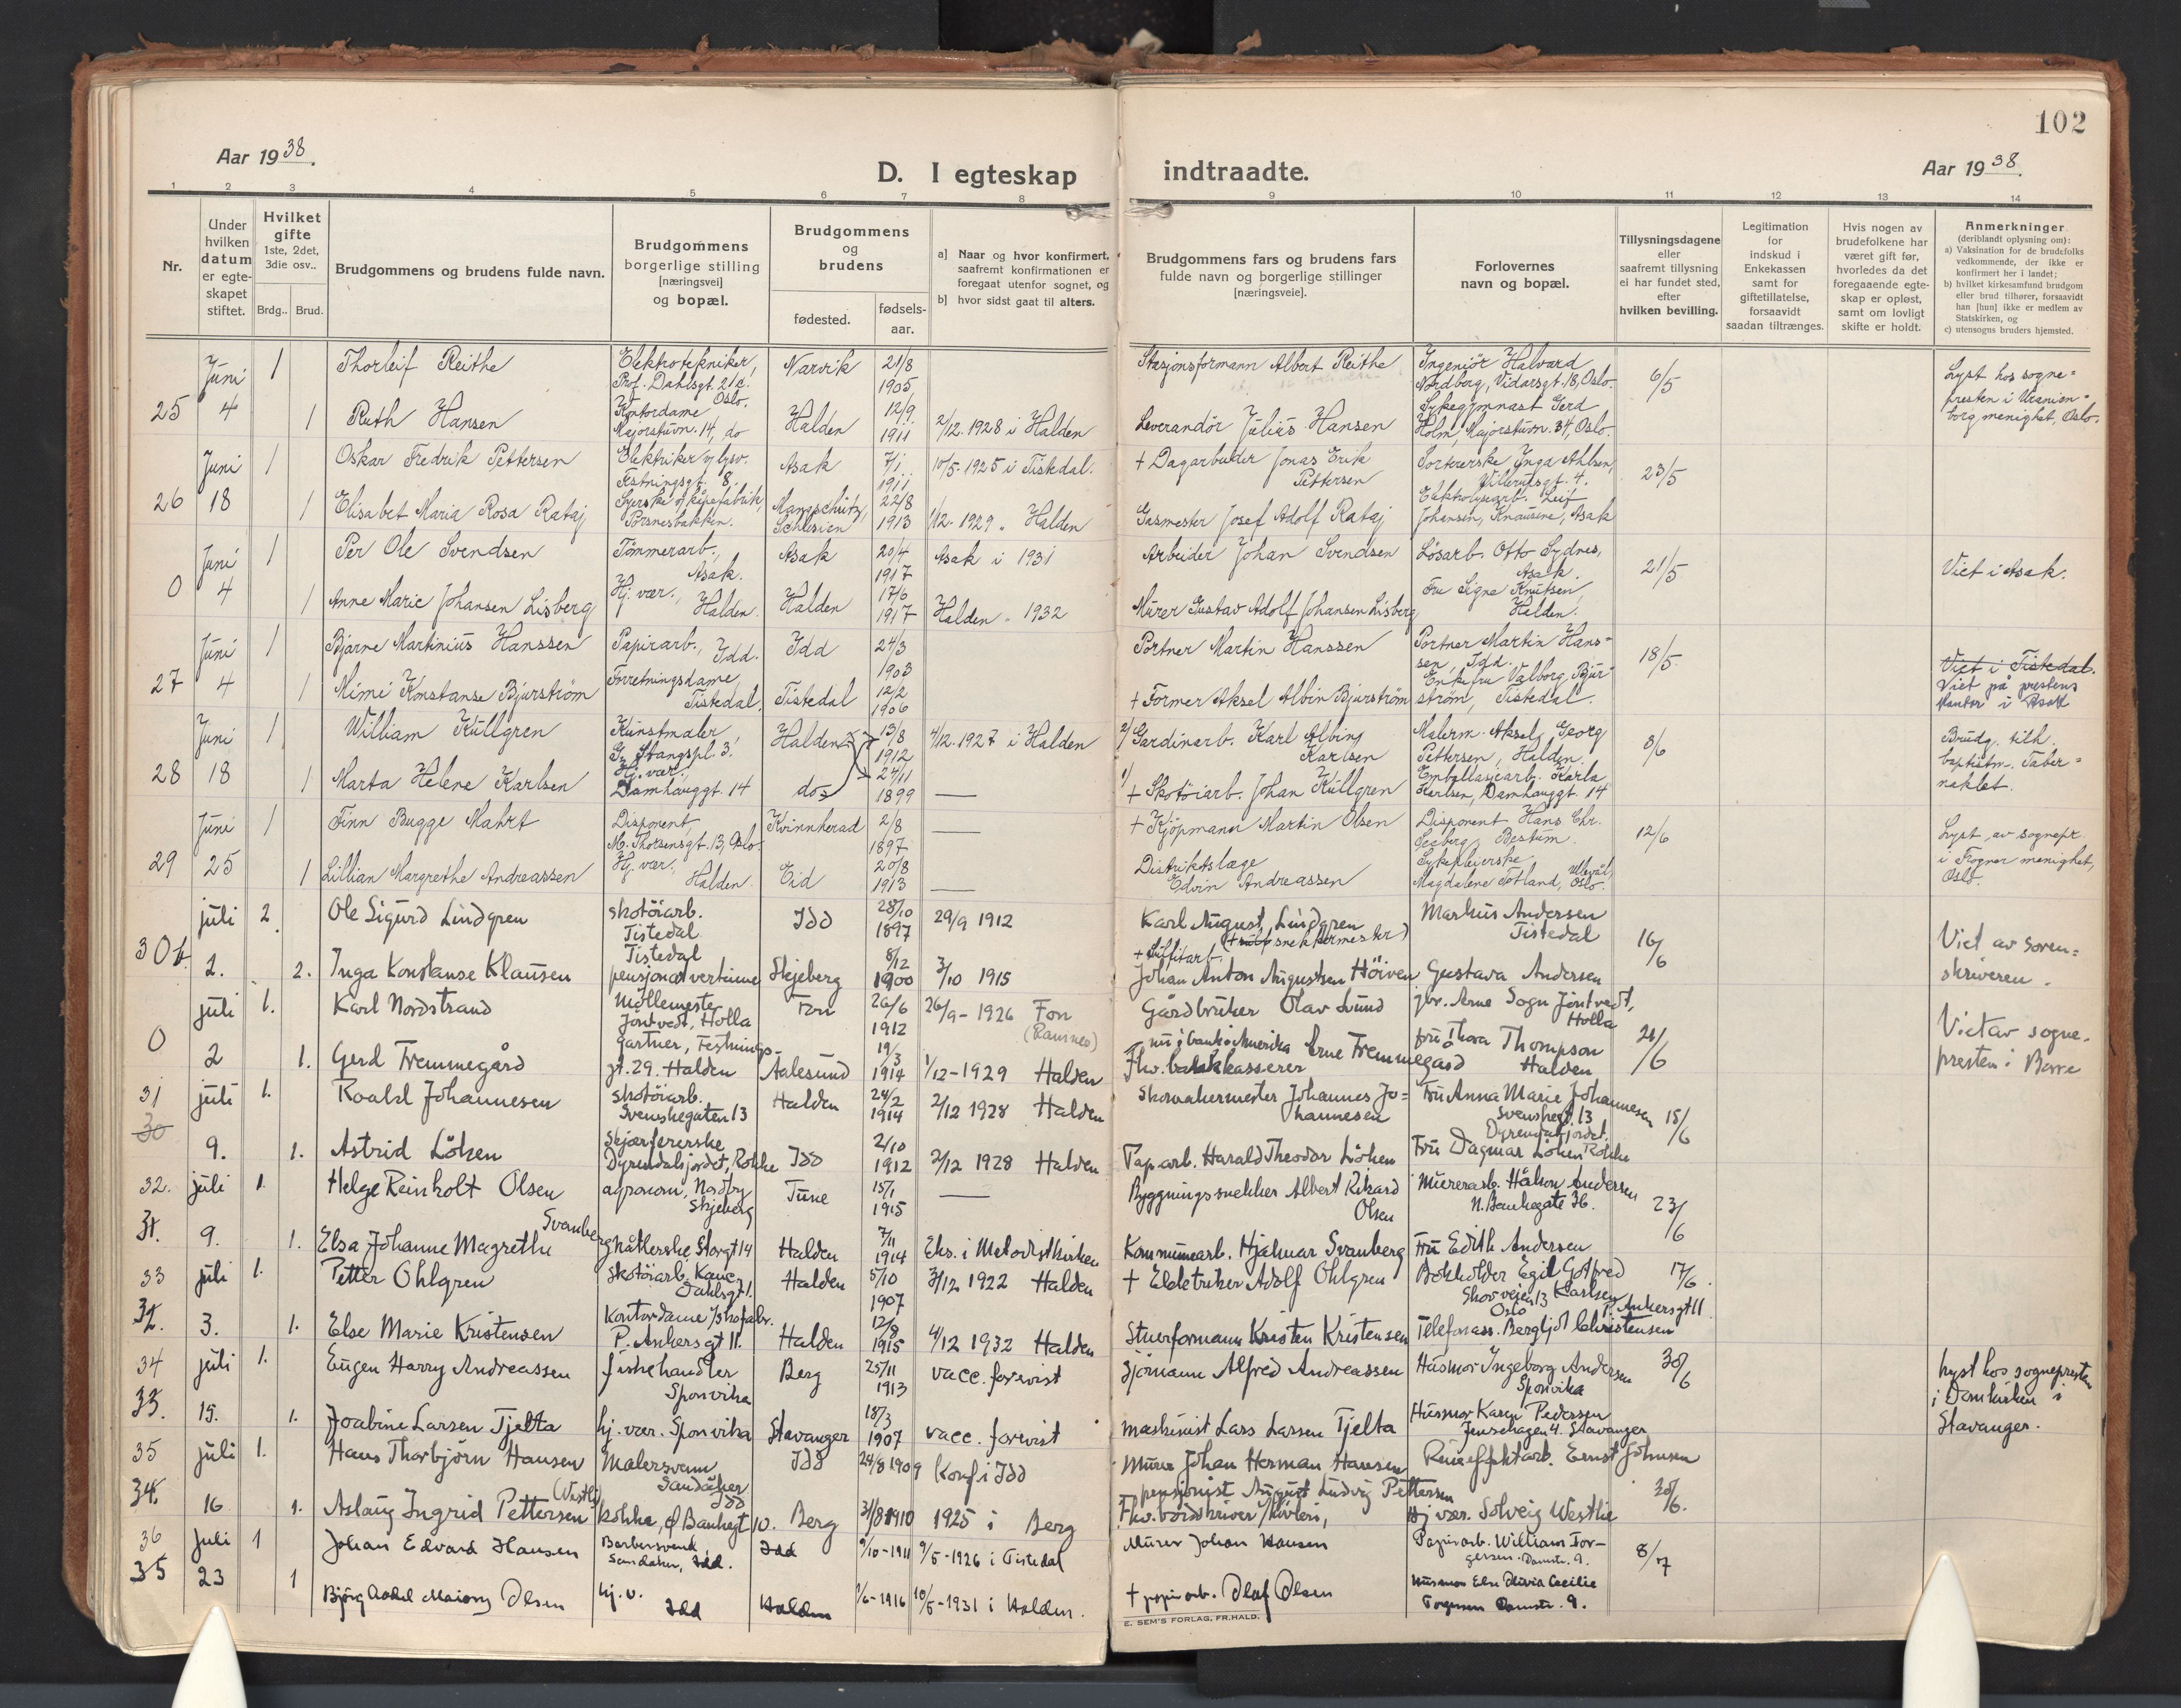 102
Aar 1938.
D. I egteskap indtraadte.
Aar 1938.
1 2 3 4 5 6 7 8 9 10 11 12 13 14
Nr.
Under hvilken datum er egteskapet stiftet.
Hvilket gifte 1ste, 2det, 3die osv..
Brdg.. Brud.
Brudgommens og brudens fulde navn.
Brudgommens borgerlige stilling [næringsvei] og bopæl.
Brudgommens og brudens
fødested.
fødsels-aar.
a] Naar og hvor konfirmert, saafremt konfirmationen er foregaat utenfor sognet, og
b] hvor sidst gaat til alters.
Brudgommens fars og brudens fars fulde navn og borgerlige stillinger [næringsveie].
Forlovernes navn og bopæl.
Tillysningsdagene eller saafremt tillysning ei har fundet sted, efter hvilken bevilling.
Legitimation for indskud i Enkekassen samt for giftetillatelse, forsaavidt saadan tiltrænges.
Hvis nogen av brudefolkene har været gift før, hvorledes da det foregaaende egteskap er opløst, samt om lovligt skifte er holdt.
Anmerkninger (deriblandt oplysning om):
a) Vaksination for de brudefolks vedkommende, der ikke er konfirmert her i landet;
b) hvilket kirkesamfund brudgom eller brud tilhører, forsaavidt han [hun] ikke er medlem av Statskirken, og
c) utensogns bruders hjemsted.
Juni 1 Thorleif Reithe Elektrotekniker, Prof. Dahlsgt. 21c. Oslo. Narvik 21/8 1905 Stasjonsformann Albert Reithe Ingeniör Halvard Nordborg, Vidarsgt. 18, Oslo. 6/5 Lyst hos sognepresten i Uranienborg menighet, Oslo.
25 4 1 Ruth Hansen Kontordame Majorstuvn. 14, do Halden 12/9 1911 2/12. 1928 i Halden Leverandör Julius Hansen Sykegymnast Gerd Holm, Majorstuvn. 34, Oslo.
Juni 1 Oskar Fredrik Pettersen Elektriker v/ lysv. Festningsgt. 8. Asak 7/1 1911 10/5. 1925 i Tistedal. + Dagarbeider Jonas Erik Pettersen Sortererske Inga Ahlsen, 23/5
26 18 1 Elisabet Maria Rosa Rataj Syerske v/ kåpefabrik, Porsnesbakken. Schlesien 22/8 1913 1/12. 1929 " Halden Gasmester Josef Adolf Rataj Leif Johansen, Knausene, Asak
Juni 1 Per Ole Svendsen Tömmerarb., Asak. Asak 20/4 1917 Asak i 1931 Arbeider Johan Svendsen Lösarb. Otto Sydnes, Asak. 21/5 Viet i Asak.
0 4 1 Anne Marie Johansen Lisberg Hj. vær., Halden. Halden 17/6 1917 Halden " 1932 Murer Gustav Adolf Johansen Lisberg Fru Signe Knutsen, Halden.
Juni 1 Bjarne Martinius Hanssen Papirarb., Idd. Idd 24/3 1903 Portner Martin Hanssen Portner Martin Hanssen, Idd. 18/5 Viet i Tistedal. Viet på prestens kontor i Asak
27 4 1 Mimi Konstanse Bjurström Forretningsdame, Tistedal. Tistedal 12/2 1906 + Former Aksel Albin Bjurström Enkefru Valborg Bjurström, Tistedal.
Juni 1 William Kullgren Kunstmaler G. Stangspl. 3. Halden 13/8 1912 4/12. 1927 i Halden 2/ Gardinarb. Karl Albin Karlsen Malerm. Aksel Georg Pettersen, Halden. 8/6 Brudg. tilh. baptistm. Tabernaklet.
28 18 1 Marta Helene Karlsen Hj. vær., Damhauggt. 14 do 24/11 1899 — 1/ + Skotöiarb. Johan Kullgren Emballasjearb. Karla Karlsen, Damhauggt. 14
Juni 1 Finn Bugge Mahrt Disponent, M. Thorsensgt. 13, Oslo. Kvinnherad 2/8 1897 — + Kjöpmann Martin Olsen Disponent Hans Chr. Seeberg, Bestum. 12/6 Lyst av sognepr. i Frogner menighet, Oslo.
29 25 1 Lillian Margrethe Andreassen Hj. vær., Halden Eid 20/8 1913 — Distriktslæge Edvin Andreassen Sykepleierske Magdalene Totland, Ullevål, Oslo.
juli 2. Ole Sigurd Lindgren skotöiarb. Tistedal Idd 28/10 1897 29/9 1912 Karl August Lindgren Markus Andersen Tistedal 16/6 Viet av sorenskriveren.
30 2. 2. Inga Konstanse Klausen Tistedal pensjonatvertinne Skjeberg 8/12 1900 3/10 1915 Johan Anton Augustsen Höiven Gustava Andersen
juli 1. Karl Nordstrand Möllemester Jöntvedt, Holla Fon 26/6 1912 26/9 - 1926 Fon (Ramnes) Gårdbruker Olav Lund gbr. Arne Sogn Jöntvedt, Holla 21/6 Viet av sognepresten i Borre
0 2 1. Gerd Fremmegård gartner, Festningsgt. 29. Halden Aalesund 19/3 1914 1/12 - 1929 Halden nu i bank i Amerika Arne Fremmegård Fhv. bankkasserer fru Thora Thompson Halden
31 juli 1. Roald Johannesen skotöiarb. Svenskegaten 13 Halden 24/2 1914 2/12 1928 Halden Skomakermester Johannes Johannesen Fru Anna Marie Johannesen Svenskegt. 13 15/6
30 9. 1. Astrid Löken Skjærfererske Dyrendalsjordet, Rokke Idd 2/10 1912 2/12 1928 Halden Paparb. Harald Theodor Löken Fru Dagmar Löken Dyrendalsjordet. Rokke
32. juli 1. Helge Reinholt Olsen agronom, Nordby Skjeberg Tune 15/1 1915 — Byggningssnekker Albert Rikard Olsen Murerarb. Håkon Andersen N. Bankegate 36. 23/6
31. 9. 1. Elsa Johanne Magrethe Svanberg Nåtlerske Storgt 14 Halden 7/11 1914 Eks. i Metodistkirken Kommunearb. Hjalmar Svanberg Fru Edith Andersen
33 juli 1. Petter Ohlgren Skotöiarb. Kanc. Dahlsgt 1. Halden 5/10 1907 3/12 1922 Halden + Eldetriker Adolf Ohlgren Bokholder Egil Gotfred Karlsen Skovveien 13 Oslo 17/6.
32. 3. 1. Else Marie Kristensen Kontordame P. Ankersgt 11. Halden 12/8 1915 4/12 1932 Halden Stuerformann Kristen Kristensen Telefonass. Bergljot Christensen P. Ankersgt 11
34 juli 1. Eugen Harry Andreassen fiskehandler Sponvika Berg 25/11 1913 vacc. forevist Sjömann Alfred Andreassen Husmor Ingeborg Andersen Sponvika 30/6 Lyst hos sognepresten i Domkirken i Stavanger.
33. 15. 1. Joabine Larsen Tjelta hj. vær. Sponvika Stavanger 18/3 1907 vacc. forevist maskinist Lars Larsen Tjelta Husmor Karen Pedersen Stavanger
35 juli 1. Hans Thorbjörn Hansen Malersvenn Sandaker Idd Idd 24/8 1909 Konf i Idd Murer Johan Herman Hansen Ernst Johnsen 30/6.
34. 16 1. Aslaug Ingrid Pettersen (Westli) kokke, Ø Bankegt 10. Berg 31/8 1910 1925 i Berg pensjonist August Ludvig Pettersen Hj vær. Solveig Westlie
36 Juli 1 Johan Edvard Hansen Barbersvenn, Sandaker, Idd. Idd 9/10 - 1911 9/5 - 1926 i Tistedal Murer Johan Hansen Papirarb. William Torgersen. Damstr. 9. 8/7
35 23 1 Björg Olsen hj. v. Idd Halden 1/6 - 1916 10/5 - 1931 i Halden. + papirarb. Olaf Olsen Husmor Else Olivia Cecilie Torgersen Damstr. 9.
E. SEM'S FORLAG, FR.HALD.